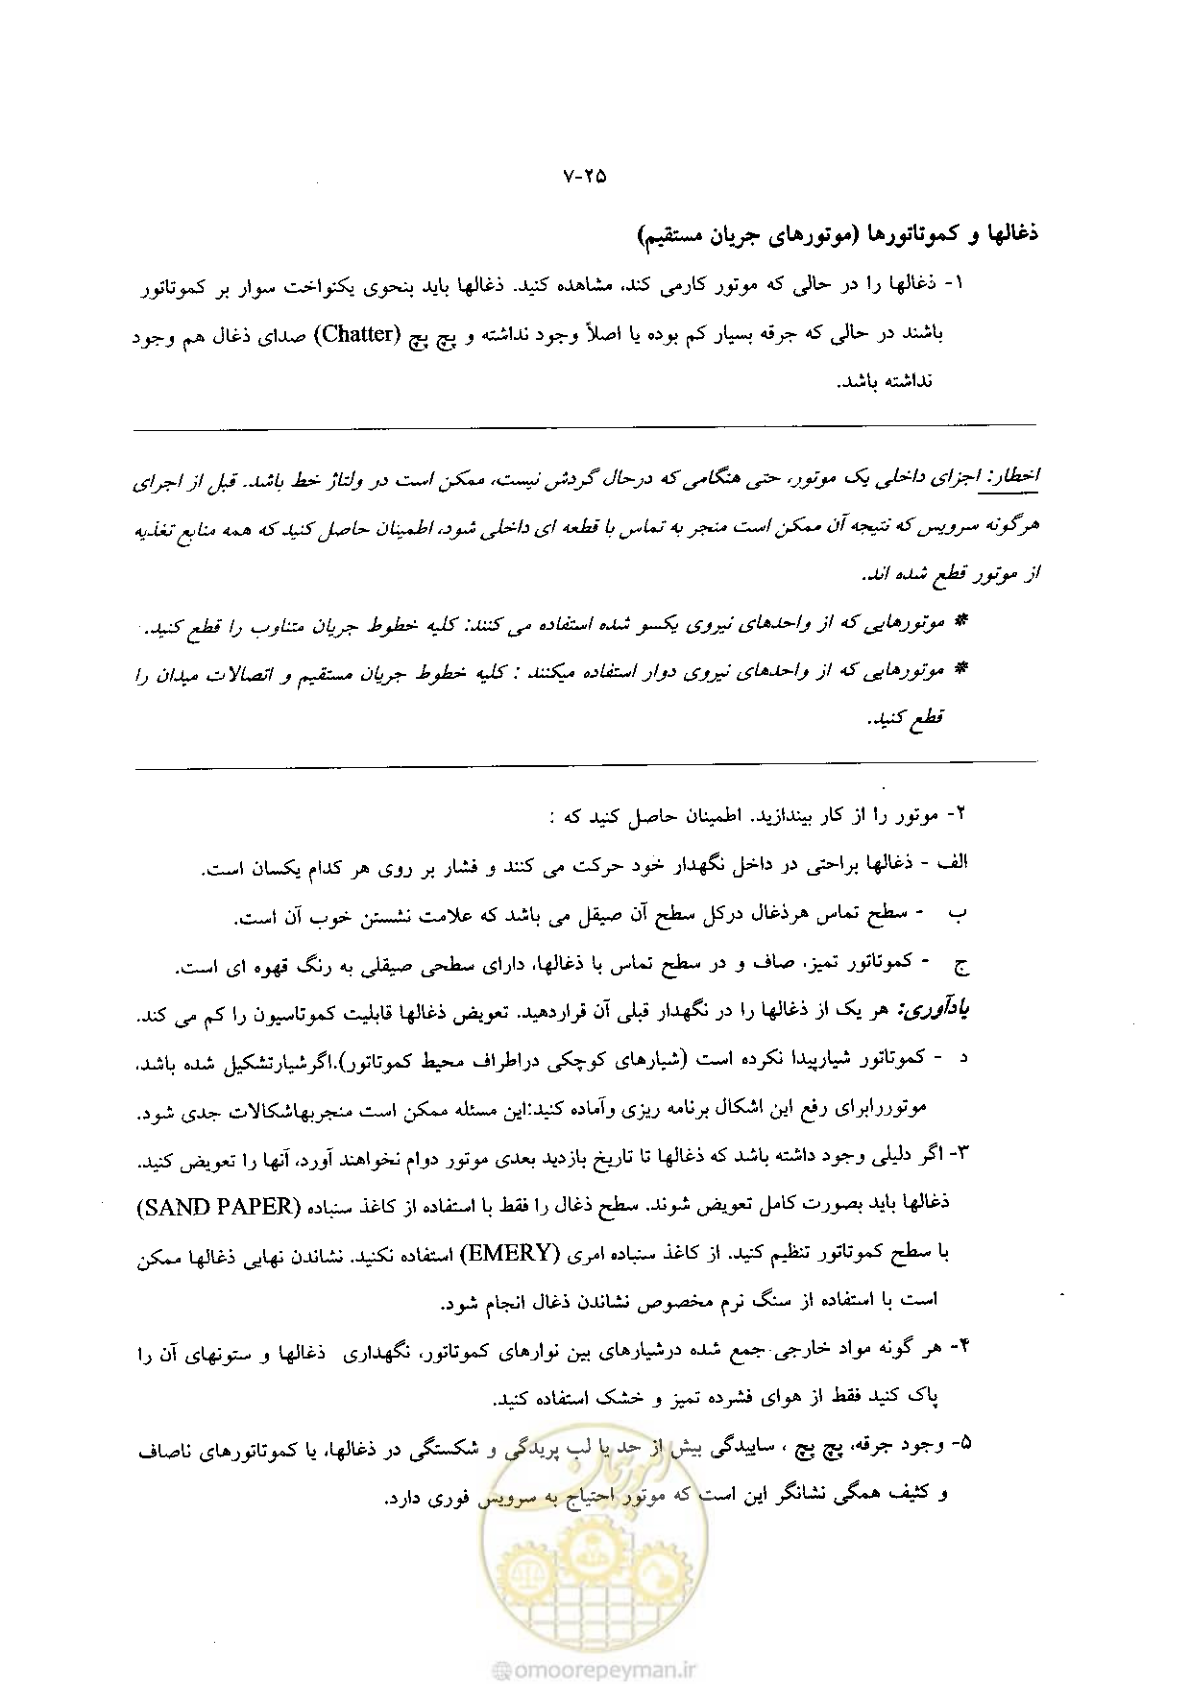 ۷-۲۵
ذغالها و کموتاتورها (موتورهای جریان مستقیم)
۱- ذغالها را در حالی که موتور کارمی کند، مشاهده کنید. ذغالها باید بنحوی یکنواخت سوار بر کموتاتور
باشند در حالی که جرقه بسیار کم بوده یا اصلاً وجود نداشته و پچ پچ (Chatter) صدای ذغال هم وجود
نداشته باشد.
اخطار: اجزای داخلی یک موتور، حتی هنگامی که درحال گردش نیست، ممکن است در ولتاژ خط باشد. قبل از اجرای
هرگونه سرویس که نتیجه آن ممکن است منجر به تماس با قطعه ای داخلی شود، اطمینان حاصل کنید که همه منابع تغذیه
از موتور قطع شده اند.
* موتورهایی که از واحدهای نیروی یکسو شده استفاده می کنند: کلیه خطوط جریان متناوب را قطع کنید.
* موتورهایی که از واحدهای نیروی دوار استفاده میکنند : کلیه خطوط جریان مستقیم و اتصالات میدان را
قطع کنید.
۲- موتور را از کار بیندازید. اطمینان حاصل کنید که :
الف - ذغالها براحتی در داخل نگهدار خود حرکت می کنند و فشار بر روی هر کدام یکسان است.
ب - سطح تماس هرذغال درکل سطح آن صیقل می باشد که علامت نشستن خوب آن است.
ج - کموتاتور تمیز، صاف و در سطح تماس با ذغالها، دارای سطحی صیقلی به رنگ قهوه ای است.
یادآوری: هر یک از ذغالها را در نگهدار قبلی آن قراردهید. تعویض ذغالها قابلیت کموتاسیون را کم می کند.
د - کموتاتور شیارپیدا نکرده است (شیارهای کوچکی دراطراف محیط کموتاتور).اگرشیارتشکیل شده باشد،
موتوررابرای رفع این اشکال برنامه ریزی وآماده کنید:این مسئله ممکن است منجربهاشکالات جدی شود.
۳- اگر دلیلی وجود داشته باشد که ذغالها تا تاریخ بازدید بعدی موتور دوام نخواهند آورد، آنها را تعویض کنید.
ذغالها باید بصورت کامل تعویض شوند. سطح ذغال را فقط با استفاده از کاغذ سنباده (SAND PAPER)
با سطح کموتاتور تنظیم کنید. از کاغذ سنباده امری (EMERY) استفاده نکنید. نشاندن نهایی ذغالها ممکن
است با استفاده از سنگ نرم مخصوص نشاندن ذغال انجام شود.
۴- هر گونه مواد خارجی جمع شده درشیارهای بین نوارهای کموتاتور، نگهداری ذغالها و ستونهای آن را
پاک کنید فقط از هوای فشرده تمیز و خشک استفاده کنید.
۵- وجود جرقه، پچ پچ ، ساییدگی بیش از حد یا لب پریدگی و شکستگی در ذغالها، یا کموتاتورهای ناصاف
و کثیف همگی نشانگر این است که موتور احتیاج به سرویس فوری دارد.
امور پیمان
@omoorepeyman.ir